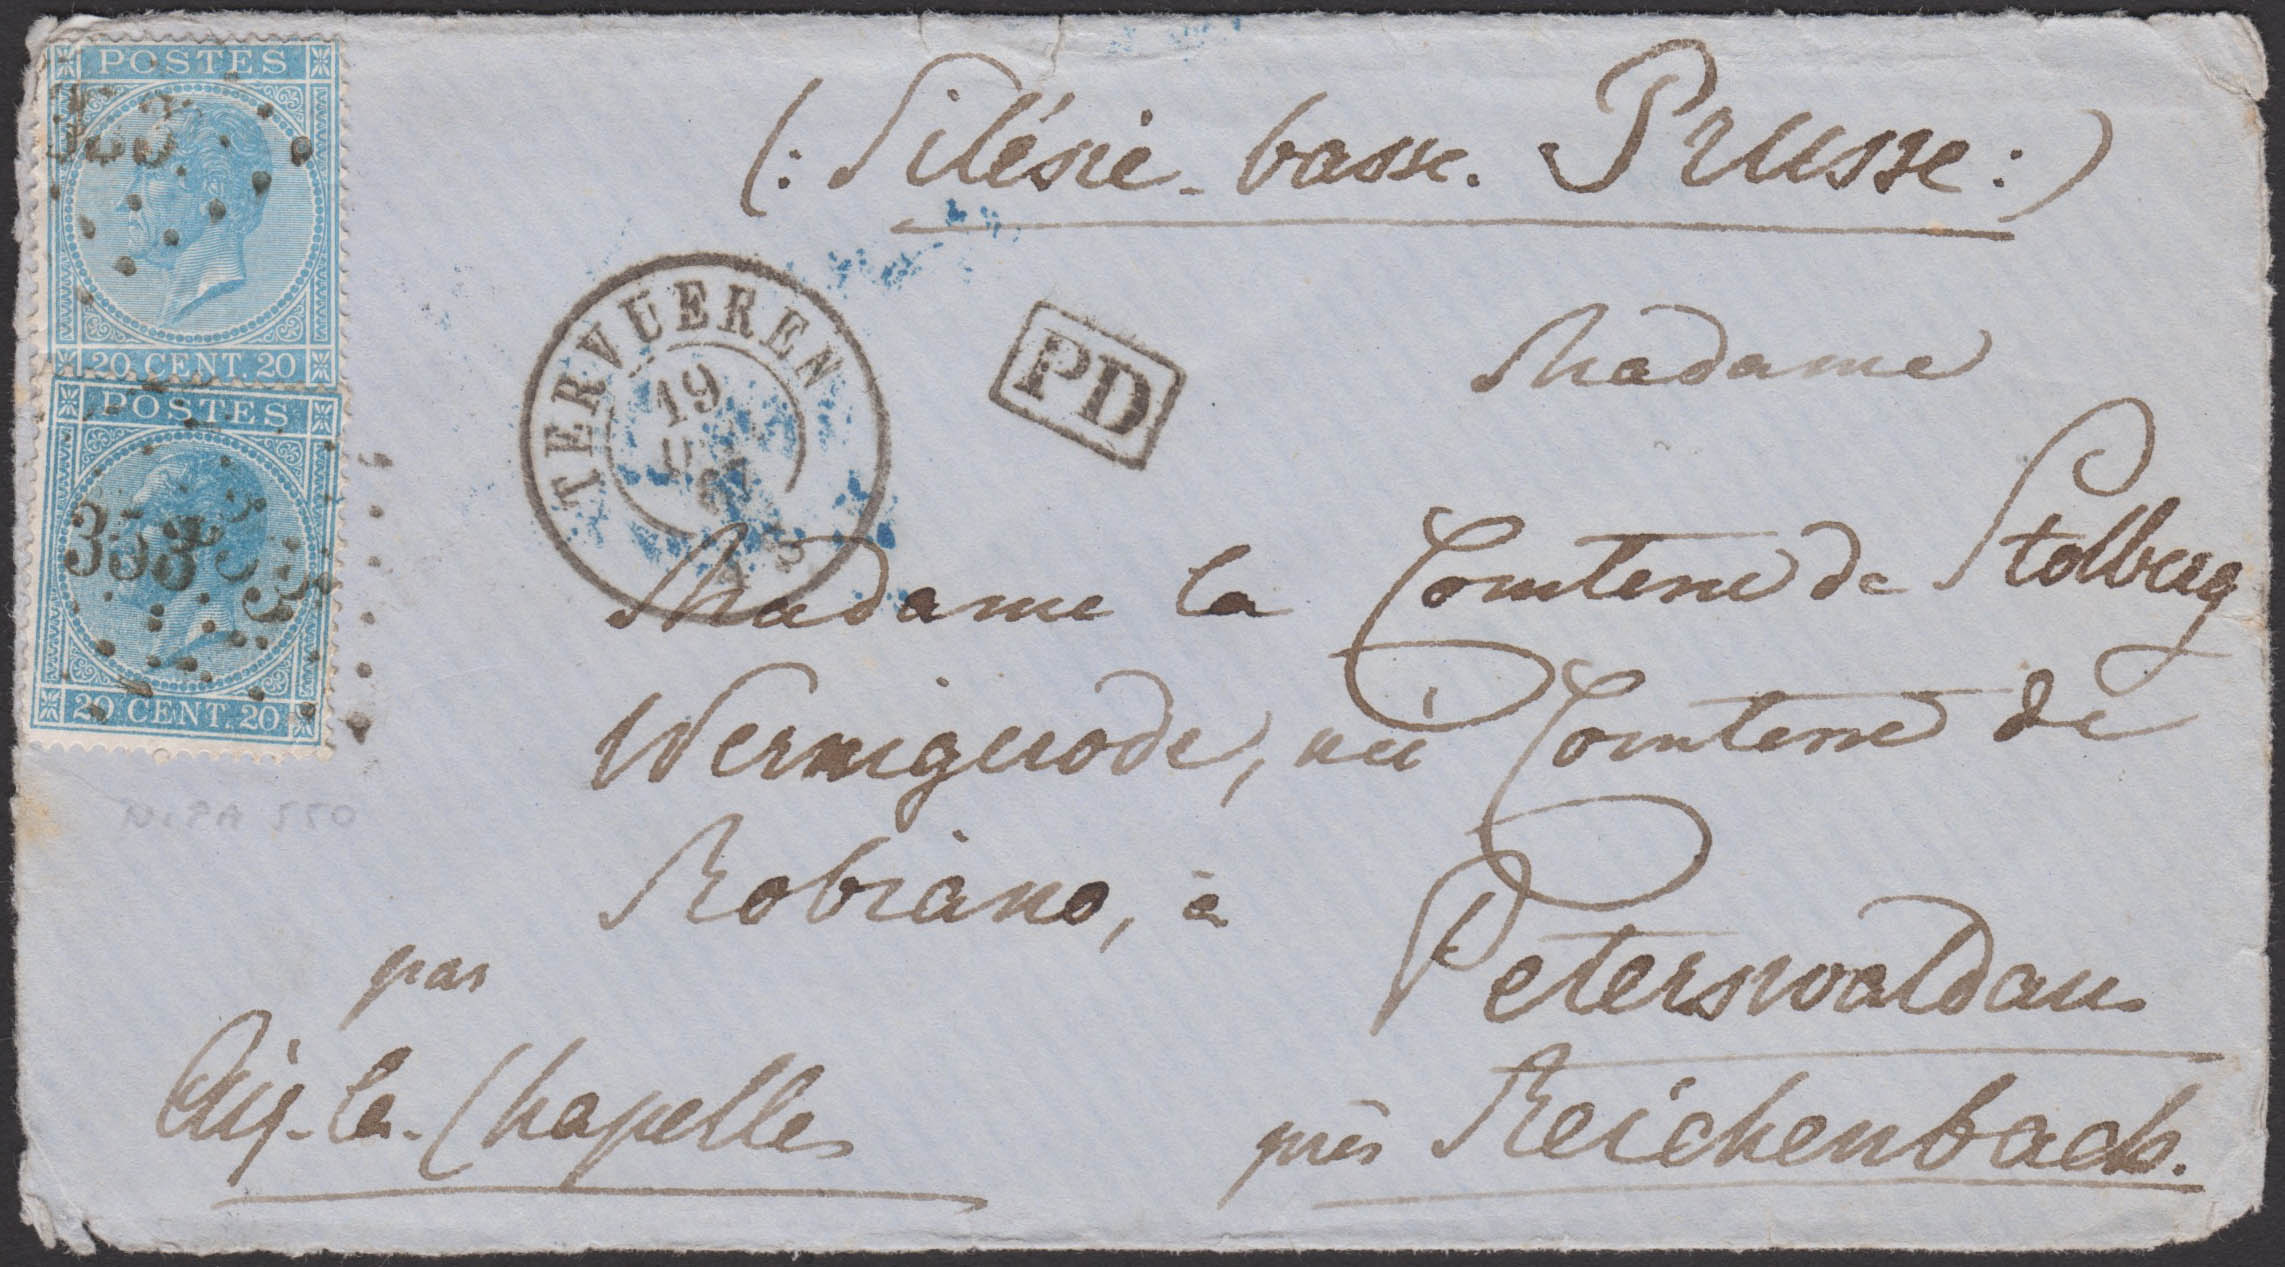 POSTES
20 CENT. 20
POSTES
353
20 CENT. 20
TERVUEREN
19
67
PD
(: Silésie - basse. Prusse :)
Madame
Madame la Comtesse de Stolberg
Wernigerode, née Comtesse de
Robiano, à
Peterswaldau
près Reichenbach.
par
Aix-la-Chapelle